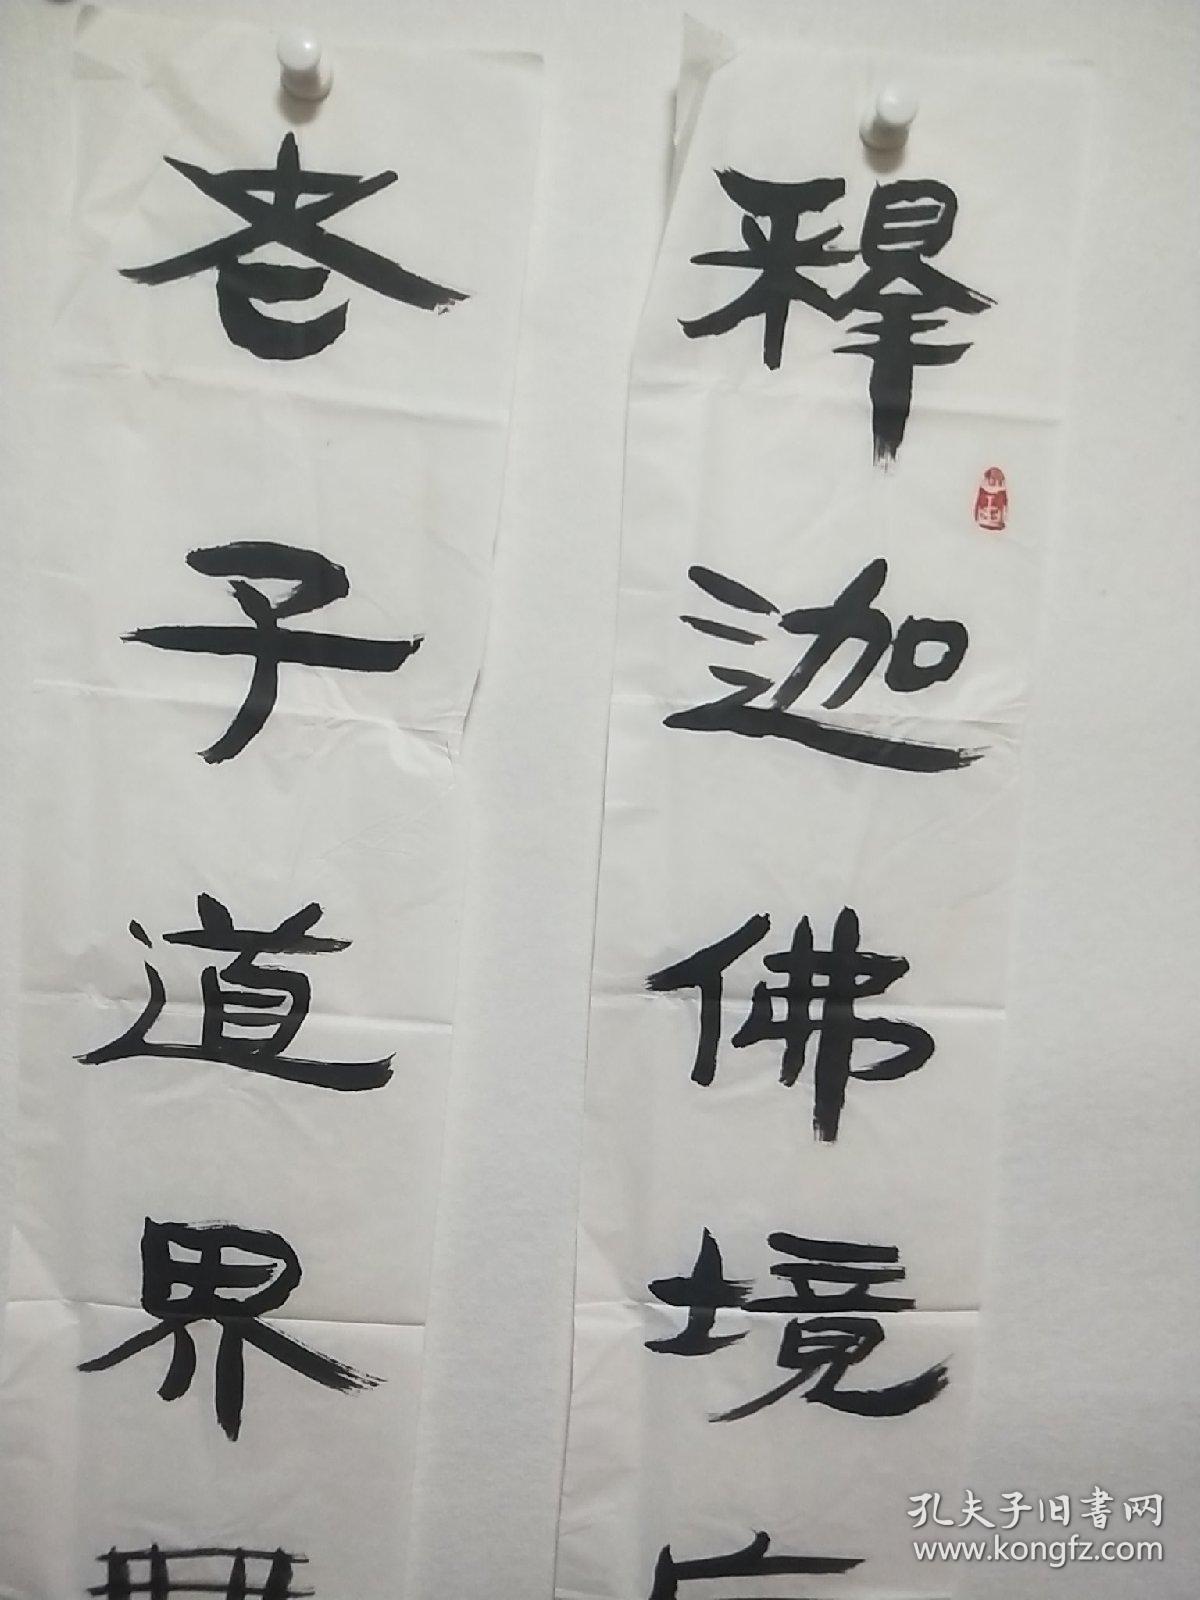 釋迦佛境
老子道界
孔夫子旧書网
www.kongfz.com